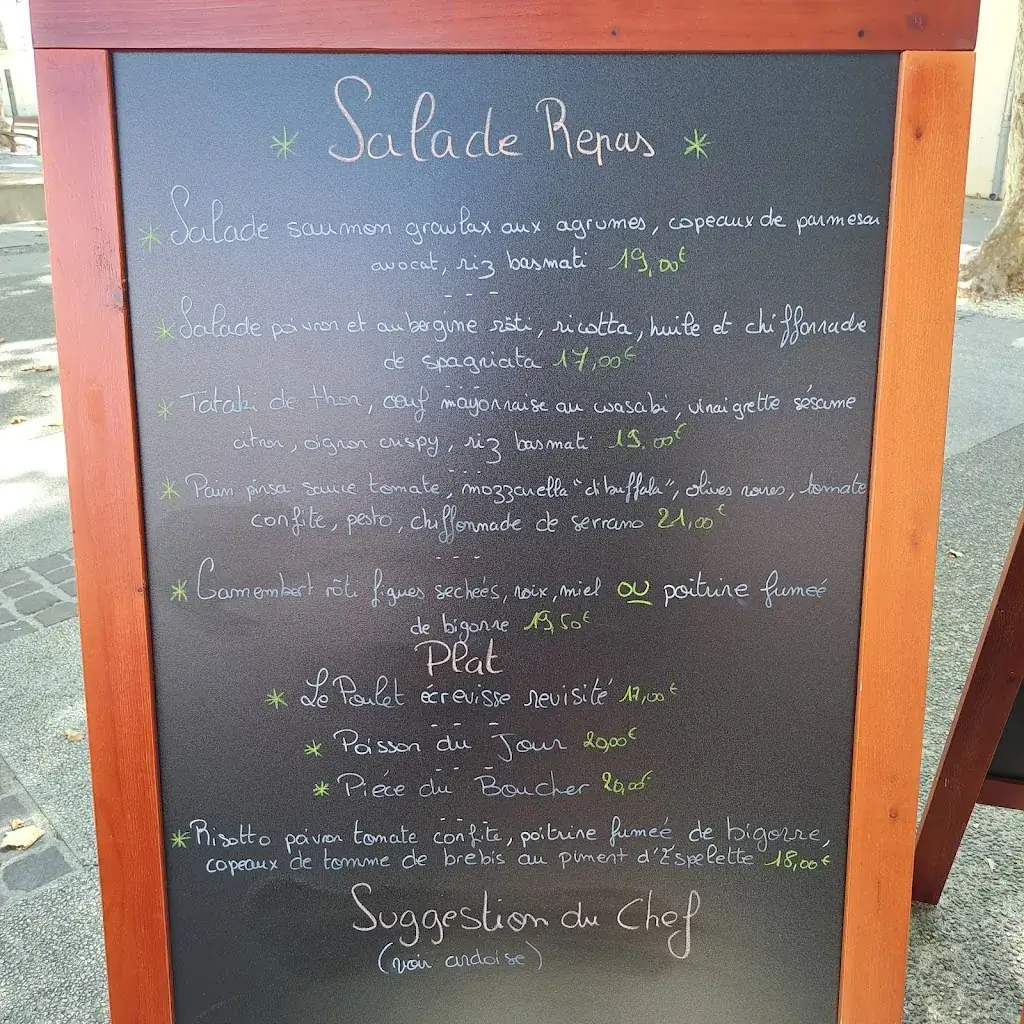 Salade Repas
Salade saumon gravlax aux agrumes, copeaux de parmesan
avocat, riz basmati 19,00€
Salade poivron et aubergine rôti, ricotta, huile et chiffonnade
de spagniata 17,00€
Tataki de thon, œuf mayonnaise au wasabi, vinaigrette sésame
citron, oignon crispy, riz basmati 19.00€
Pain pinsa sauce tomate, mozzarella "di buffala", olives noires, tomate
confite, pesto, chiffonnade de serrano 21,00€
Camembert rôti figues sechées, noix, miel OU poitrine fumée
de bigorre 19,50€
Plat
Le Poulet écrevisse revisité 17,00€
Poisson du Jour 20,00€
Pièce du Boucher 26,00€
Risotto poivron tomate confite, poitrine fumée de bigorre,
copeaux de tomme de brebis au piment d'Espelette 18,00€
Suggestion du Chef
(voir ardoise)